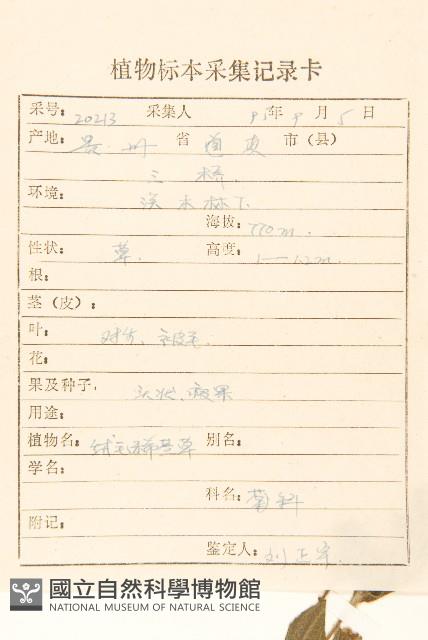 植物标本采集记录卡
采号：20213 采集人 95年9月5日
产地：贵州 省 道真 市（县）
三桥
环境：溪木林下
海拔：770m.
性状：草. 高度：1—1.2m.
根：
茎（皮）：
叶：对生、被毛
花：
果及种子：头状、瘦果
用途：
植物名：绒毛稀莶草 别名：
学名：
科名：菊科
附记：
鉴定人：刘正宇.
國立自然科學博物館
NATIONAL MUSEUM OF NATURAL SCIENCE